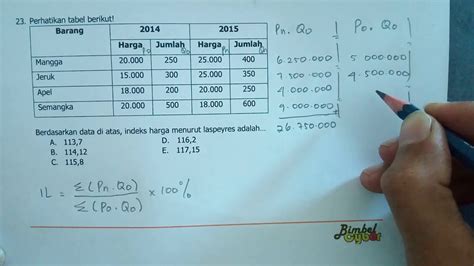 23. Perhatikan tabel berikut!
Barang 2014 2015
Harga Po Jumlah Qo Harga Pn Jumlah Qn
Mangga 20.000 250 25.000 400
Jeruk 15.000 300 25.000 350
Apel 18.000 200 20.000 250
Semangka 20.000 500 18.000 600
Berdasarkan data di atas, indeks harga menurut laspeyres adalah...
A. 113,7 D. 116,2
B. 114,12 E. 117,15
C. 115,8
IL = Σ(Pn.Qo) / Σ(Po.Qo) × 100%
Pn.Qo Po.Qo
6.250.000 5 000 000
7.500.000 4.500.000
4.000.000
9.000.000
26.750.000
Bimbel
Cyber